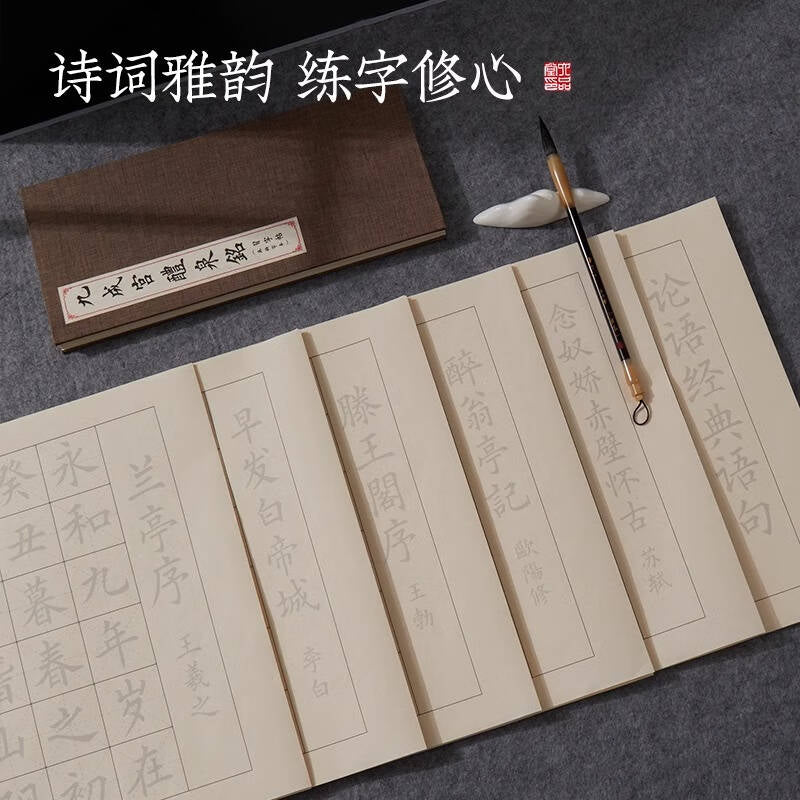 诗词雅韵 练字修心
九成宮醴泉銘
習字帖
兰亭序
王羲之
永和九年岁在
癸丑暮春之初
山
早发白帝城
李白
滕王閣序
王勃
醉翁亭記
歐陽修
念奴娇赤壁怀古
苏轼
论语经典语句